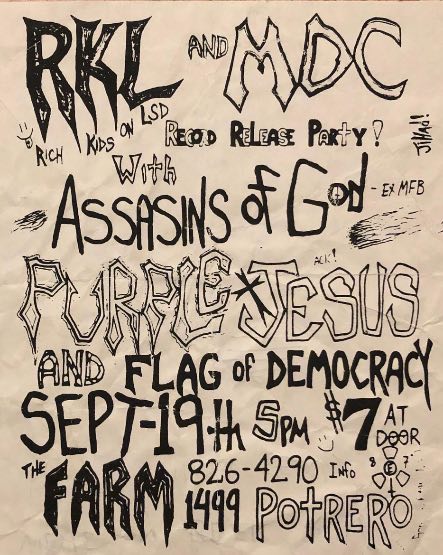 RKL AND MDC
RICH KIDS ON LSD
RECORD RELEASE PARTY!
JiHAD!
With
ASSASINS of GOD - EX MFB
ACK!
PURPLE JESUS
AND FLAG of DEMOCRACY
SEPT-19-th 5PM $7 AT DOOR
THE FARM 826-4290 INFO
8 E 7
1499 POTRERO